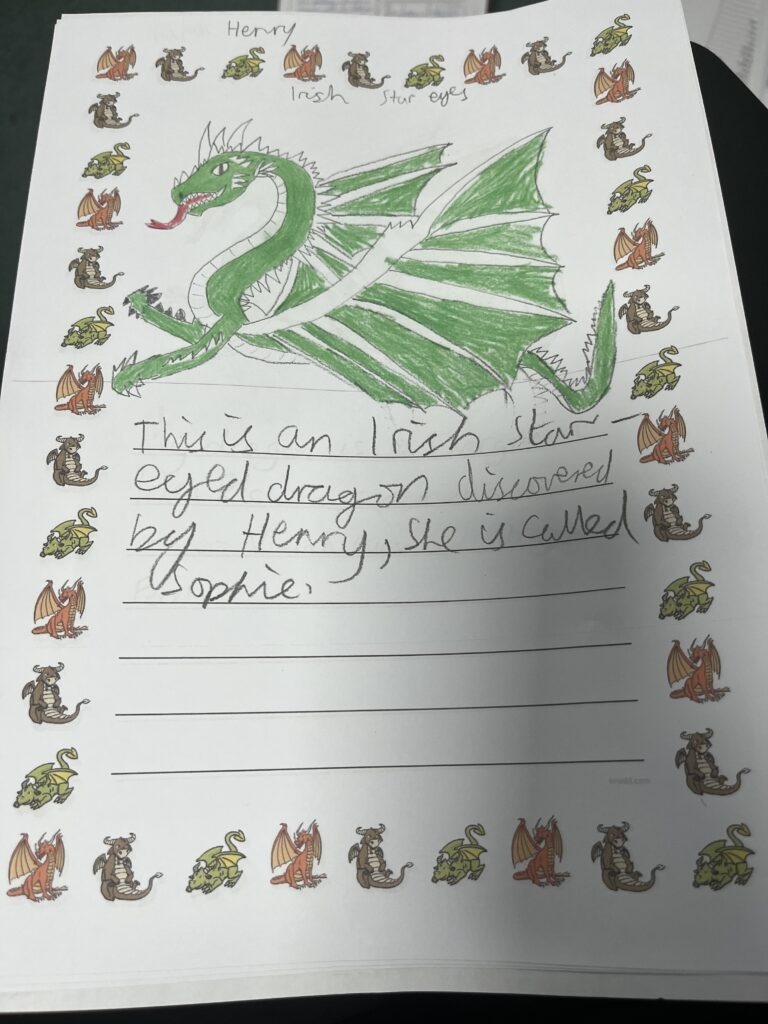 Henry
Irish Star eyes
This is an Irish Star-
eyed dragon discovered
by Henry, She is called
Sophie.